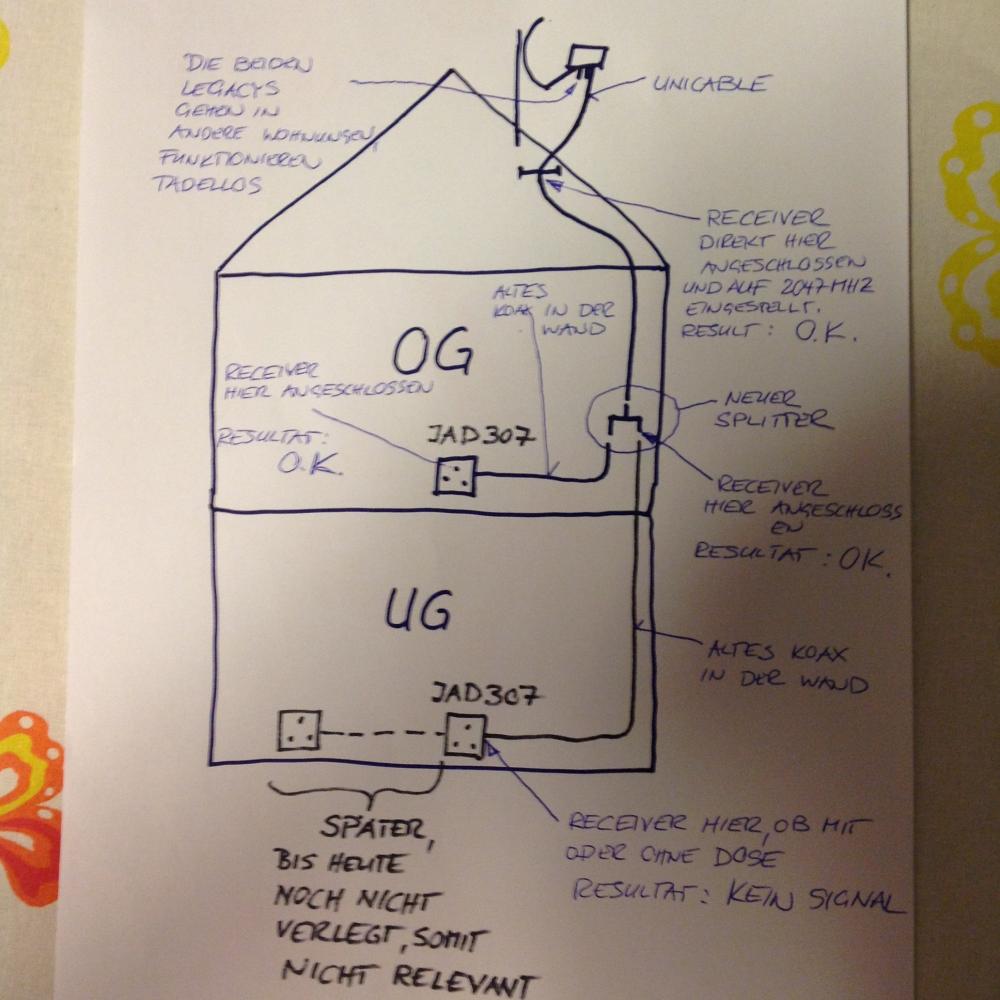 DIE BEIDEN
LEGACYS
GEHEN IN
ANDERE WOHNUNGEN,
FUNKTIONIEREN
TADELLOS
UNICABLE
RECEIVER
DIREKT HIER
ANGESCHLOSSEN
UND AUF 2047 MHZ
EINGESTELLT.
RESULT: O.K.
ALTES
KOAX IN DER
WAND
OG
RECEIVER
HIER ANGESCHLOSSEN
RESULTAT:
O.K.
JAD307
NEUER
SPLITTER
RECEIVER
HIER ANGESCHLOSS
EN
RESULTAT: OK.
UG
ALTES KOAX
IN DER WAND
JAD307
SPÄTER,
BIS HEUTE
NOCH NICHT
VERLEGT, SOMIT
NICHT RELEVANT
RECEIVER HIER, OB MIT
ODER OHNE DOSE
RESULTAT: KEIN SIGNAL